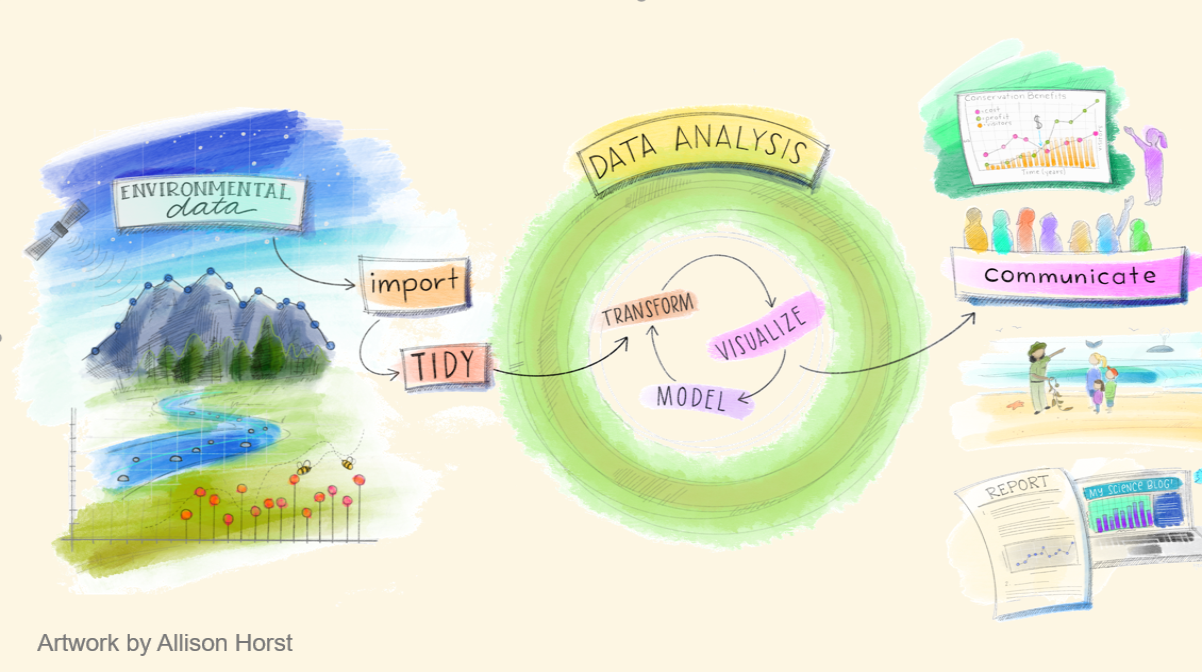 ENVIRONMENTAL
data
import
TIDY
DATA ANALYSIS
TRANSFORM
VISUALIZE
MODEL
Conservation Benefits
cost
profit
visitors
$
Time (years)
communicate
REPORT
1.
2.
MY SCIENCE BLOG!
Artwork by Allison Horst